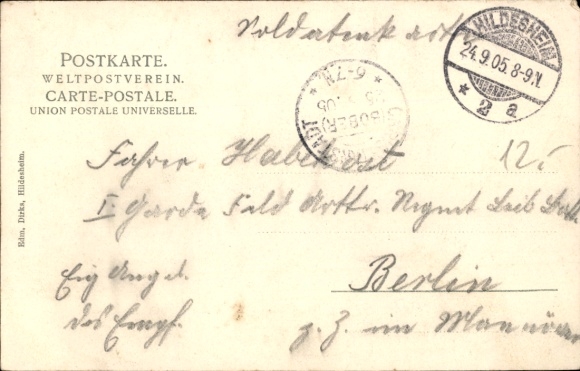 Soldatenkarte
POSTKARTE.
WELTPOSTVEREIN.
CARTE-POSTALE.
UNION POSTALE UNIVERSELLE.
HILDESHEIM
24.9.05. 8-9.N.
* 2 a
* 6-7N. *
05
(OBER)
STADT
12
Fahrer Haberkost
I Garde Feld Arttr. Regmt Leib Batt
Berlin
z. Z. im Manöver
Eig Angel.
des Empf.
Edm. Dirks, Hildesheim.